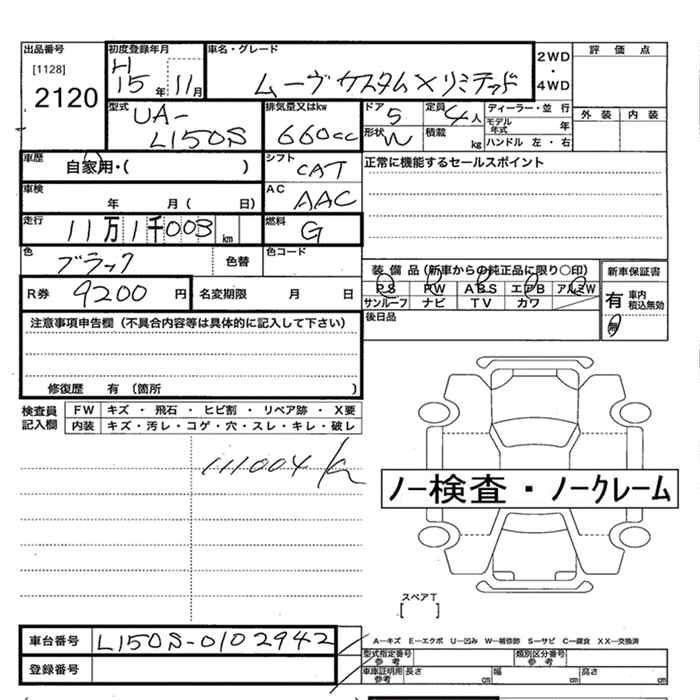 出品番号
[1128]
2120
初度登録年月
H
15年 11月
車名・グレード
ムーヴ カスタム X リミテッド
2WD
・
4WD
評価点
外装 内装
型式
UA-
L150S
排気量又はkw
660cc
ドア 5
形状 W
定員 4人
積載 kg
ディーラー・並行
モデル年式 年
ハンドル 左・右
車歴
自家用・( )
シフト
CAT
正常に機能するセールスポイント
車検
年 月( 日)
AC
AAC
走行
11万1千003 km
燃料
G
色
ブラック
色替
色コード
装備品(新車からの純正品に限り○印)
PS PW ABS エアB アルミW
サンルーフ ナビ TV カワ
新車保証書
有 車内積込無効
無
R券 9200円
名変期限 月 日
後日品
注意事項申告欄(不具合内容等は具体的に記入して下さい)
修復歴 有(箇所 )
検査員記入欄
FW キズ・飛石・ヒビ割・リペア跡・X要
内装 キズ・汚レ・コゲ・穴・スレ・キレ・破レ
111004 k
ノー検査・ノークレーム
スペアT
[ ]
車台番号 L150S-0102942
登録番号
A－キズ E－エクボ U－凹み W－補修跡 S－サビ C－腐食 XX－交換済
型式指定番号 参考
類別区分番号 参考
車庫証明用 参考
長さ cm 幅 cm 高さ cm